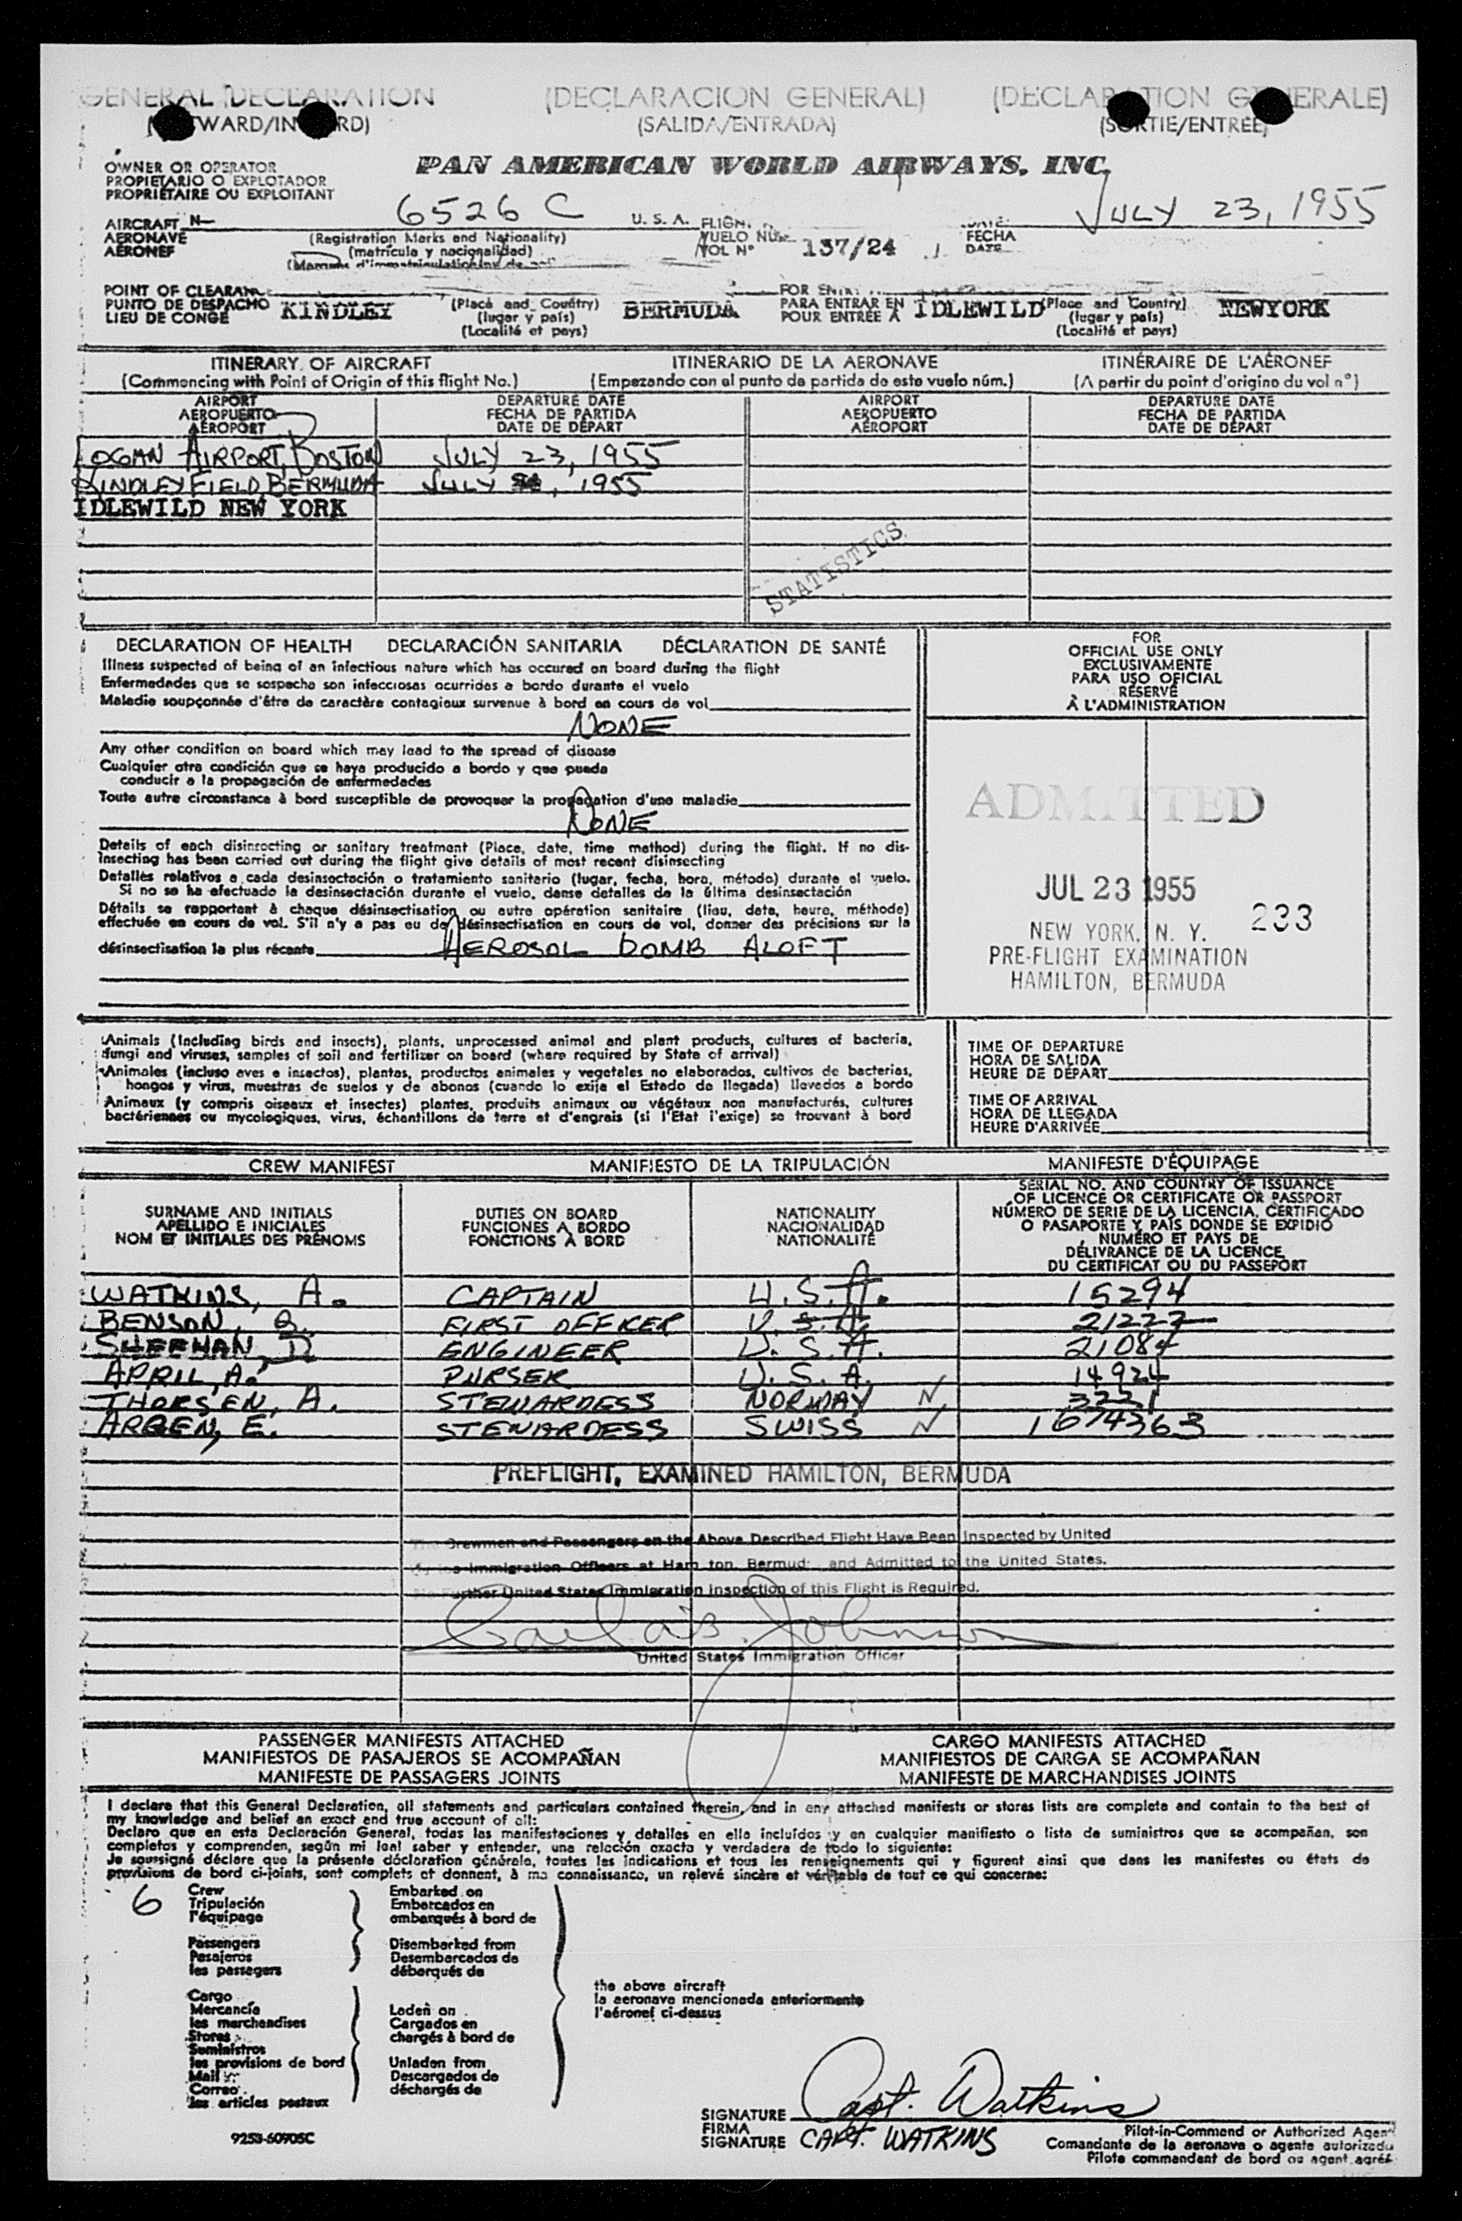 GENERAL DECLARATION (DECLARACION GENERAL) (DECLARATION GENERALE)
(OUTWARD/INWARD) (SALIDA/ENTRADA) (SORTIE/ENTRÉE)
OWNER OR OPERATOR
PROPIETARIO O EXPLOTADOR
PROPRIÉTAIRE OU EXPLOITANT
PAN AMERICAN WORLD AIRWAYS, INC.
AIRCRAFT N- 6526 C U. S. A.
AERONAVE
AÉRONEF
(Registration Marks and Nationality)
(matrícula y nacionalidad)
VUELO NÚM.
VOL N° 137/24
FECHA
DATE
JULY 23, 1955
POINT OF CLEARANCE
PUNTO DE DESPACHO
LIEU DE CONGÉ
KINDLEY
(Place and Country)
(lugar y país)
(Localité et pays)
BERMUDA
FOR ENTRY
PARA ENTRAR EN
POUR ENTRÉE À
IDLEWILD
(Place and Country)
(lugar y país)
(Localité et pays)
NEWYORK
ITINERARY OF AIRCRAFT ITINERARIO DE LA AERONAVE ITINÉRAIRE DE L'AÉRONEF
(Commencing with Point of Origin of this flight No.) (Empezando con el punto de partida de este vuelo núm.) (A partir du point d'origine du vol n°)
AIRPORT DEPARTURE DATE AIRPORT DEPARTURE DATE
AEROPUERTO FECHA DE PARTIDA AEROPUERTO FECHA DE PARTIDA
AÉROPORT DATE DE DÉPART AÉROPORT DATE DE DÉPART
LOGAN AIRPORT, BOSTON JULY 23, 1955
KINDLEY FIELD, BERMUDA JULY , 1955
IDLEWILD NEW YORK
STATISTICS
DECLARATION OF HEALTH DECLARACIÓN SANITARIA DÉCLARATION DE SANTÉ
Illness suspected of being of an infectious nature which has occured on board during the flight
Enfermedades que se sospecha son infecciosas ocurridas a bordo durante el vuelo
Maladie soupçonnée d'être de caractère contagieux survenue à bord en cours de vol
NONE
Any other condition on board which may lead to the spread of disease
Cualquier otra condición que se haya producido a bordo y que pueda
conducir a la propagación de enfermedades
Toute autre circonstance à bord susceptible de provoquer la propagation d'une maladie
NONE
Details of each disinsecting or sanitary treatment (Place, date, time method) during the flight. If no dis-
insecting has been carried out during the flight give details of most recent disinsecting
Detalles relativos a cada desinsectación o tratamiento sanitario (lugar, fecha, hora, método) durante el vuelo.
Si no se ha efectuado la desinsectación durante el vuelo, dense detalles de la última desinsectación
Détails se rapportant à chaque désinsectisation ou autre opération sanitaire (lieu, date, heure, méthode)
effectuée en cours de vol. S'il n'y a pas eu de désinsectisation en cours de vol, donner des précisions sur la
désinsectisation la plus récente AEROSOL BOMB ALOFT
FOR
OFFICIAL USE ONLY
EXCLUSIVAMENTE
PARA USO OFICIAL
RÉSERVÉ
À L'ADMINISTRATION
ADMITTED
JUL 23 1955
233
NEW YORK, N. Y.
PRE-FLIGHT EXAMINATION
HAMILTON, BERMUDA
Animals (Including birds and insects), plants, unprocessed animal and plant products, cultures of bacteria,
fungi and viruses, samples of soil and fertilizer on board (where required by State of arrival)
Animales (incluso aves e insectos), plantas, productos animales y vegetales no elaborados, cultivos de bacterias,
hongos y virus, muestras de suelos y de abonos (cuando lo exija el Estado de llegada) llevados a bordo
Animaux (y compris oiseaux et insectes) plantes, produits animaux ou végétaux non manufacturés, cultures
bactériennes ou mycologiques, virus, échantillons de terre et d'engrais (si l'Etat l'exige) se trouvant à bord
TIME OF DEPARTURE
HORA DE SALIDA
HEURE DE DÉPART
TIME OF ARRIVAL
HORA DE LLEGADA
HEURE D'ARRIVÉE
CREW MANIFEST MANIFIESTO DE LA TRIPULACIÓN MANIFESTE D'ÉQUIPAGE
SURNAME AND INITIALS
APELLIDO E INICIALES
NOM ET INITIALES DES PRÉNOMS
DUTIES ON BOARD
FUNCIONES A BORDO
FONCTIONS À BORD
NATIONALITY
NACIONALIDAD
NATIONALITÉ
SERIAL NO. AND COUNTRY OF ISSUANCE
OF LICENCE OR CERTIFICATE OR PASSPORT
NÚMERO DE SERIE DE LA LICENCIA, CERTIFICADO
O PASAPORTE Y PAÍS DONDE SE EXPIDIÓ
NUMÉRO ET PAYS DE
DÉLIVRANCE DE LA LICENCE,
DU CERTIFICAT OU DU PASSEPORT
WATKINS, A. CAPTAIN U.S.A. 15294
BENSON, G. FIRST OFFICER U.S.A. 21227
SHEEHAN, D ENGINEER U.S.A. 21084
APRIL, A. PURSER U.S.A. 14924
THORSEN, A. STEWARDESS NORWAY 3221
ARGEN, E. STEWARDESS SWISS 1674363
PREFLIGHT, EXAMINED HAMILTON, BERMUDA
The Crewmen and Passengers on the Above Described Flight Have Been Inspected by United
Immigration Officers at Hamilton, Bermuda and Admitted to the United States.
No Further United States Immigration Inspection of this Flight is Required.
Johnson
United States Immigration Officer
PASSENGER MANIFESTS ATTACHED CARGO MANIFESTS ATTACHED
MANIFIESTOS DE PASAJEROS SE ACOMPAÑAN MANIFIESTOS DE CARGA SE ACOMPAÑAN
MANIFESTE DE PASSAGERS JOINTS MANIFESTE DE MARCHANDISES JOINTS
I declare that this General Declaration, all statements and particulars contained therein, and in any attached manifests or stores lists are complete and contain to the best of
my knowledge and belief an exact and true account of all:
Declaro que en esta Declaración General, todas las manifestaciones y detalles en ella incluídos y en cualquier manifiesto o lista de suministros que se acompañan, son
completos y comprenden, según mi leal saber y entender, una relación exacta y verdadera de todo lo siguiente:
Je soussigné déclare que la présente déclaration générale, toutes les indications et tous les renseignements qui y figurent ainsi que dans les manifestes ou états de
provisions de bord ci-joints, sont complets et donnent, à ma connaissance, un relevé sincère et véritable de tout ce qui concerne:
6
Crew
Tripulación
l'équipage
Passengers
Pasajeros
les passagers
Cargo
Mercancía
les marchandises
Stores
Suministros
les provisions de bord
Mail
Correo
les articles postaux
Embarked on
Embarcados en
embarqués à bord de
Disembarked from
Desembarcados de
débarqués de
Laden on
Cargados en
chargés à bord de
Unladen from
Descargados de
déchargés de
the above aircraft
la aeronave mencionada anteriormente
l'aéronef ci-dessus
SIGNATURE Capt. Watkins
FIRMA
SIGNATURE CAPT. WATKINS
Pilot-in-Command or Authorized Agent
Comandante de la aeronave o agente autorizado
Pilote commandant de bord ou agent agréé
9253-60905C